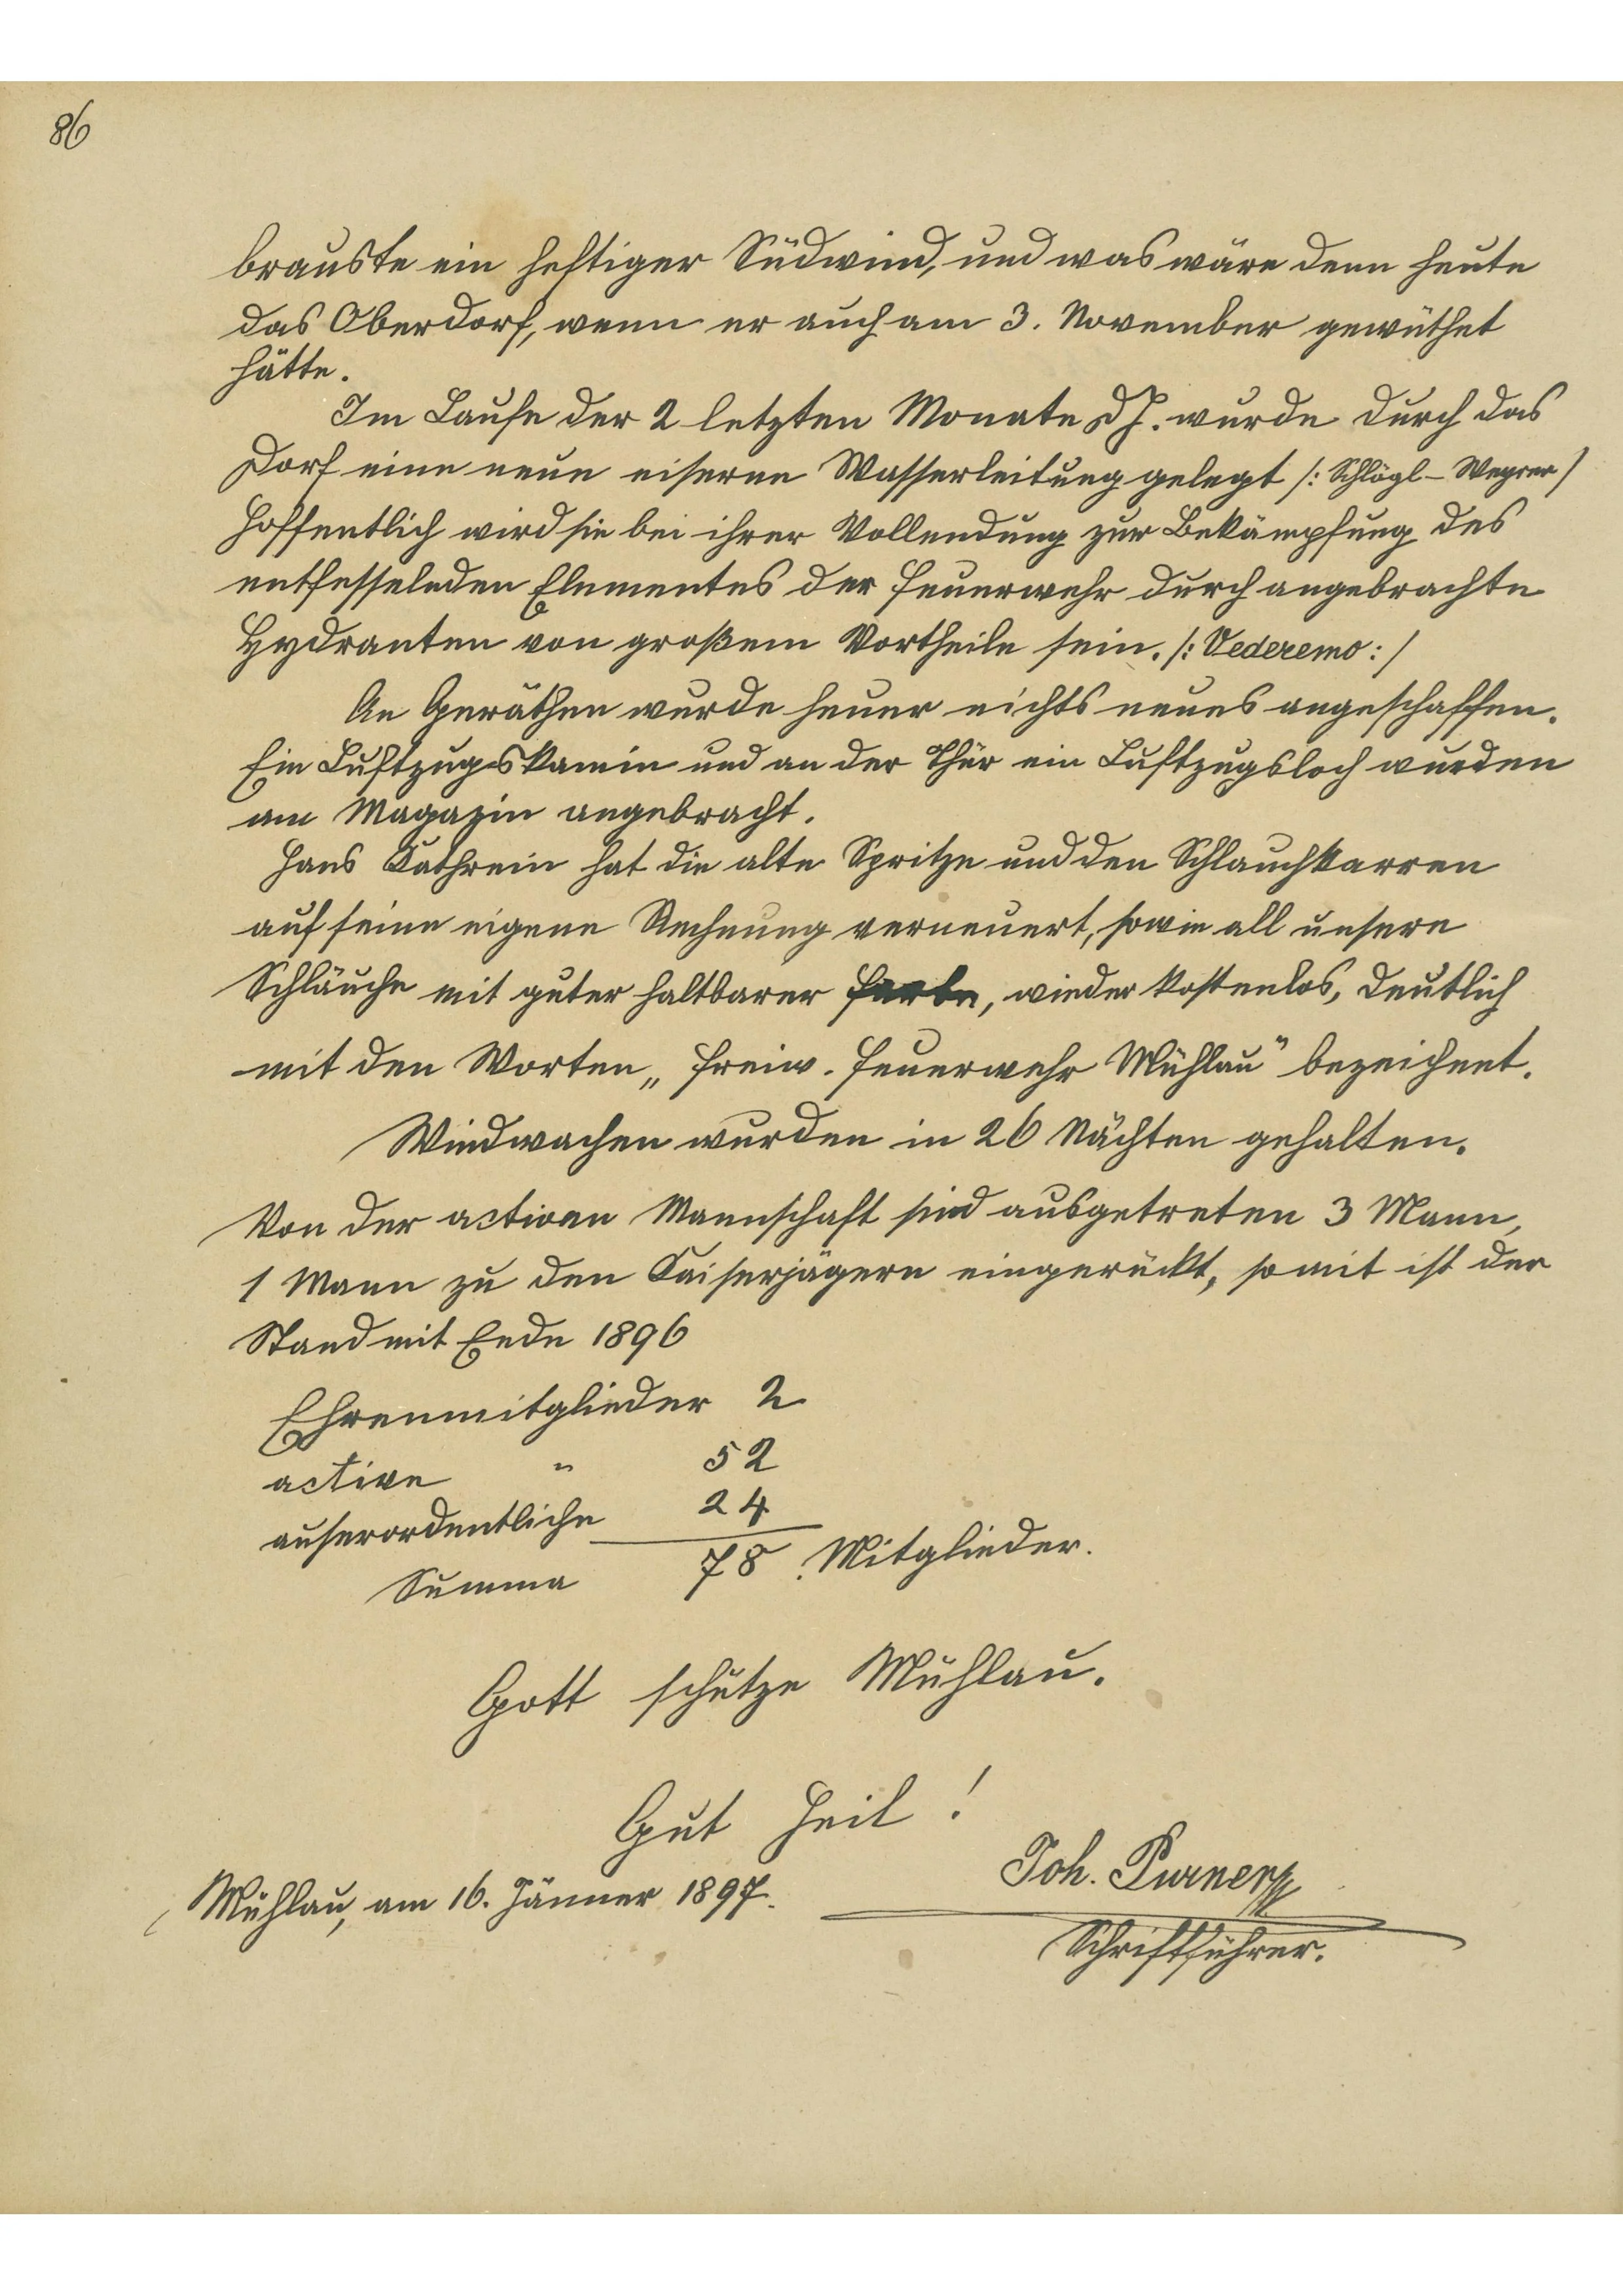 86
brauste ein heftiger Südwind, und was wäre denn heute
das Oberdorf, wenn er auch am 3. November gewüthet
hätte.
Im Laufe der 2 letzten Monate d J. wurde durch das
Dorf eine neue eiserne Wasserleitung gelegt /: Schlögl - Wegrer /
Hoffentlich wird sie bei ihrer Vollendung zur Bekämpfung des
entfesselnden Elementes der Feuerwehr durch angebrachte
Hydranten von großem Vortheile sein. /: Vederemo :/
An Geräthen wurde heuer nichts neues angeschaffen.
Ein Luftzugskamin und an der Thür ein Luftzugsloch wurden
am Magazin angebracht.
Hans Kathrein hat die alte Spritze und den Schlauchkarren
auf seine eigene Rechnung verneuert, sowie all unsere
Schläuche mit guter haltbarer Farbe, wieder kostenlos, deutlich
mit den Worten „ Freiw. Feuerwehr Mühlau" bezeichnet.
Windwachen wurden in 26 Nächten gehalten.
Von der activen Mannschaft sind ausgetreten 3 Mann,
1 Mann zu den Kaiserjägern eingerückt, somit ist der
Stand mit Ende 1896
Ehrenmitglieder 2
active " 52
auserordentliche 24
Summa 78 Mitglieder.
Gott schütze Mühlau.
Gut Heil !
Joh. Purner
Mühlau, am 16. Jänner 1897.
Schriftführer.